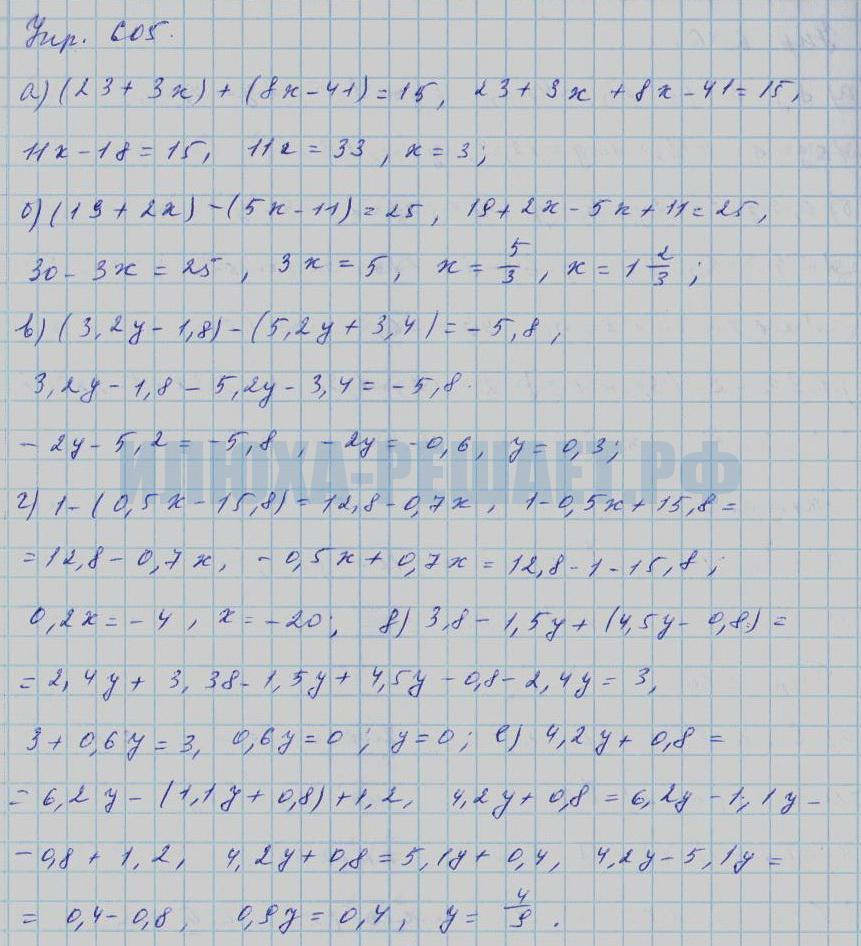 Упр. 605.
а) (23 + 3x) + (8x - 41) = 15, 23 + 3x + 8x - 41 = 15,
11x - 18 = 15, 11x = 33, x = 3;
б) (19 + 2x) - (5x - 11) = 25, 19 + 2x - 5x + 11 = 25,
30 - 3x = 25, 3x = 5, x = 5/3, x = 1 2/3;
в) (3,2y - 1,8) - (5,2y + 3,4) = - 5,8;
3,2y - 1,8 - 5,2y - 3,4 = - 5,8.
- 2y - 5,2 = -5,8, -2y = -0,6, y = 0,3;
ИПНЮХА-РЕШАЕТ.РФ
г) 1 - (0,5x - 15,8) = 12,8 - 0,7x, 1 - 0,5x + 15,8 =
= 12,8 - 0,7x, - 0,5x + 0,7x = 12,8 - 1 - 15,8;
0,2x = - 4, x = - 20; д) 3,8 - 1,5y + (4,5y - 0,8) =
= 2,4y + 3, 38 - 1,5y + 4,5y - 0,8 - 2,4y = 3,
3 + 0,6y = 3, 0,6y = 0; y = 0; е) 4,2y + 0,8 =
= 6,2y - (1,1y + 0,8) + 1,2, 4,2y + 0,8 = 6,2y - 1,1y -
- 0,8 + 1,2, 4,2y + 0,8 = 5,1y + 0,4, 4,2y - 5,1y =
= 0,4 - 0,8, 0,9y = 0,4, y = 4/9.